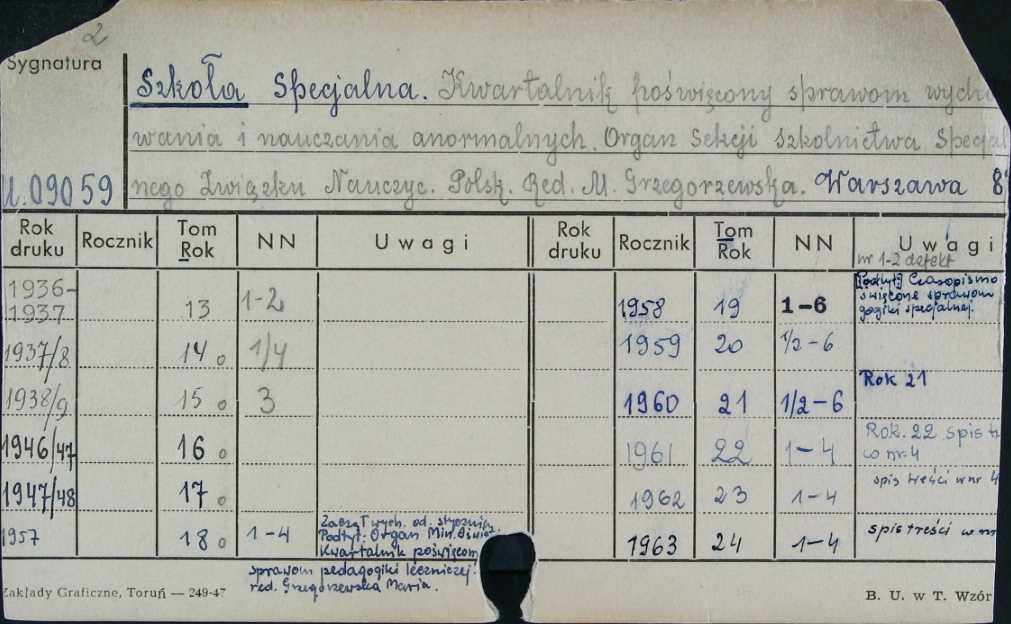 2
Sygnatura
Szkoła Specjalna. Kwartalnik poświęcony sprawom wycho
wania i nauczania anormalnych. Organ Sekcji Szkolnictwa Specjal
U.09059 nego Związku Nauczyc. Polsk. Red. M. Grzegorzewska. Warszawa 8°
Rok druku Rocznik Tom Rok NN Uwagi Rok druku Rocznik Tom Rok NN Uwagi
nr 1-2 defekt
1936-1937 13 1-2 1958 19 1-6 Podtyt. Czasopismo
święcone sprawom
gogiki specjalnej.
1937/8 14 1/4 1959 20 1/2-6
1938/9 15 3 1960 21 1/2-6 Rok 21
1946/47 16 1961 22 1-4 Rok. 22 spis tr
w nr. 4
1947/48 17 1962 23 1-4 spis treści w nr 4
1957 18 1-4 Zaczął wych. od. stycznia.
Podtyt. Organ Min. Oświaty
Kwartalnik poświęcony
1963 24 1-4 spis treści w nr
sprawom pedagogiki leczniczej.
red. Grzegorzewska Maria.
Zakłady Graficzne, Toruń — 249-47 B. U. w T. Wzór